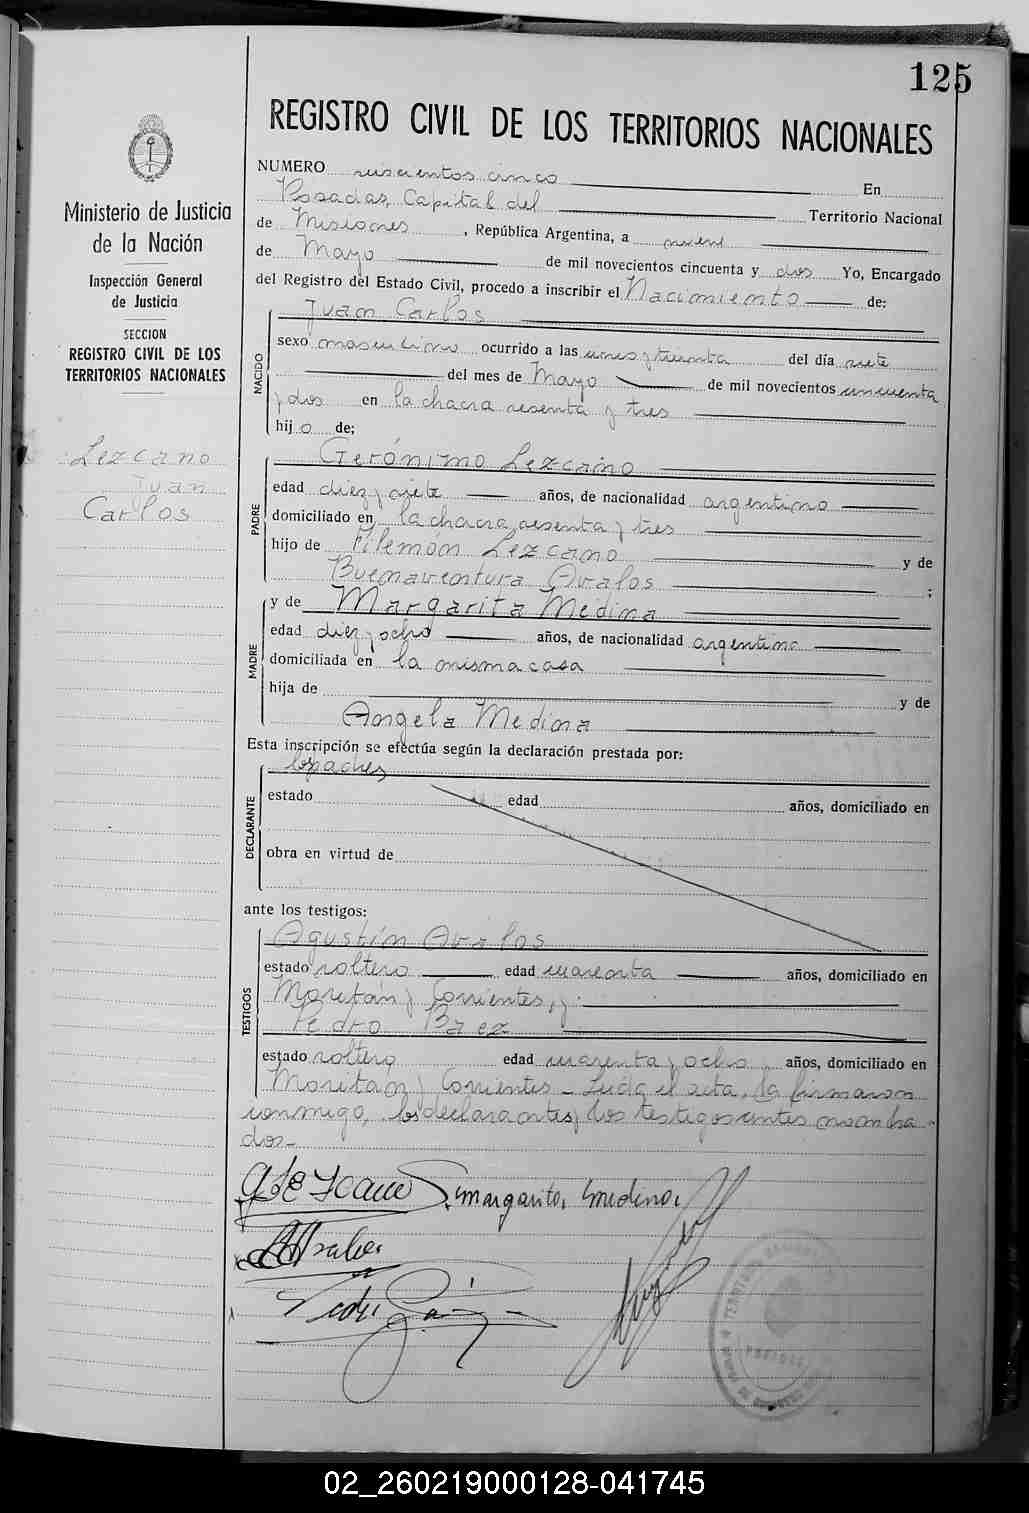 125
REGISTRO CIVIL DE LOS TERRITORIOS NACIONALES
Ministerio de Justicia
de la Nación
Inspección General
de Justicia
SECCION
REGISTRO CIVIL DE LOS
TERRITORIOS NACIONALES
Lezcano
Juan
Carlos
NUMERO seiscientos cinco En
Posadas, Capital del Territorio Nacional
de Misiones, República Argentina, a nueve
de Mayo de mil novecientos cincuenta y dos Yo, Encargado
del Registro del Estado Civil, procedo a inscribir el Nacimiento de:
Juan Carlos
NACIDO
sexo masculino ocurrido a las y treinta del día siete
del mes de Mayo de mil novecientos cincuenta
y dos en la chacra sesenta y tres
hijo de;
Gerónimo Lezcano
PADRE
edad diez y siete años, de nacionalidad argentino
domiciliado en la chacra sesenta y tres
hijo de Filemón Lezcano y de
Buenaventura Avalos ;
y de Margarita Medina
MADRE
edad diez y ocho años, de nacionalidad argentina
domiciliada en la misma casa
hija de y de
Angela Medina
Esta inscripción se efectúa según la declaración prestada por:
los padres
DECLARANTE
estado edad años, domiciliado en
obra en virtud de
ante los testigos:
Agustín Avalos
TESTIGOS
estado soltero edad cuarenta años, domiciliado en
Moritán, Corrientes, y
Pedro Baez
estado soltero edad cuarenta y ocho años, domiciliado en
Moritan, Corrientes - Leída el acta, la firmaron
conmigo, los declarantes y los testigos antes nombra-
dos-
Margarita Medina
02_260219000128-041745